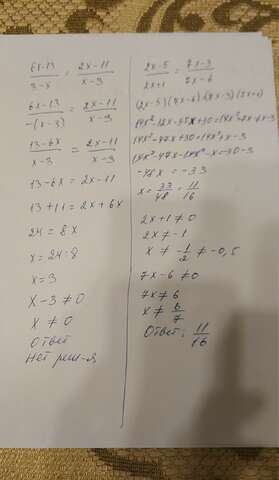 6x-13 / 3-x = 2x-11 / x-3
6x-13 / -(x-3) = 2x-11 / x-3
13-6x / x-3 = 2x-11 / x-3
13-6x = 2x-11
13+11 = 2x+6x
24 = 8x
x = 24:8
x = 3
x-3 ≠ 0
x ≠ 0
Ответ
Нет реш-я
2x-5 / 2x+1 = 7x-3 / 7x-6
(2x-5)(7x-6)=(7x-3)(2x+1)
14x²-12x-35x+30=14x²+7x-6x-3
14x²-47x+30=14x²+x-3
14x²-47x-14x²-x=-30-3
-48x = -33
x = 33/48 = 11/16
2x+1 ≠ 0
2x ≠ -1
x ≠ -1/2 ≠ -0,5
7x-6 ≠ 0
7x ≠ 6
x ≠ 6/7
Ответ: 11/16